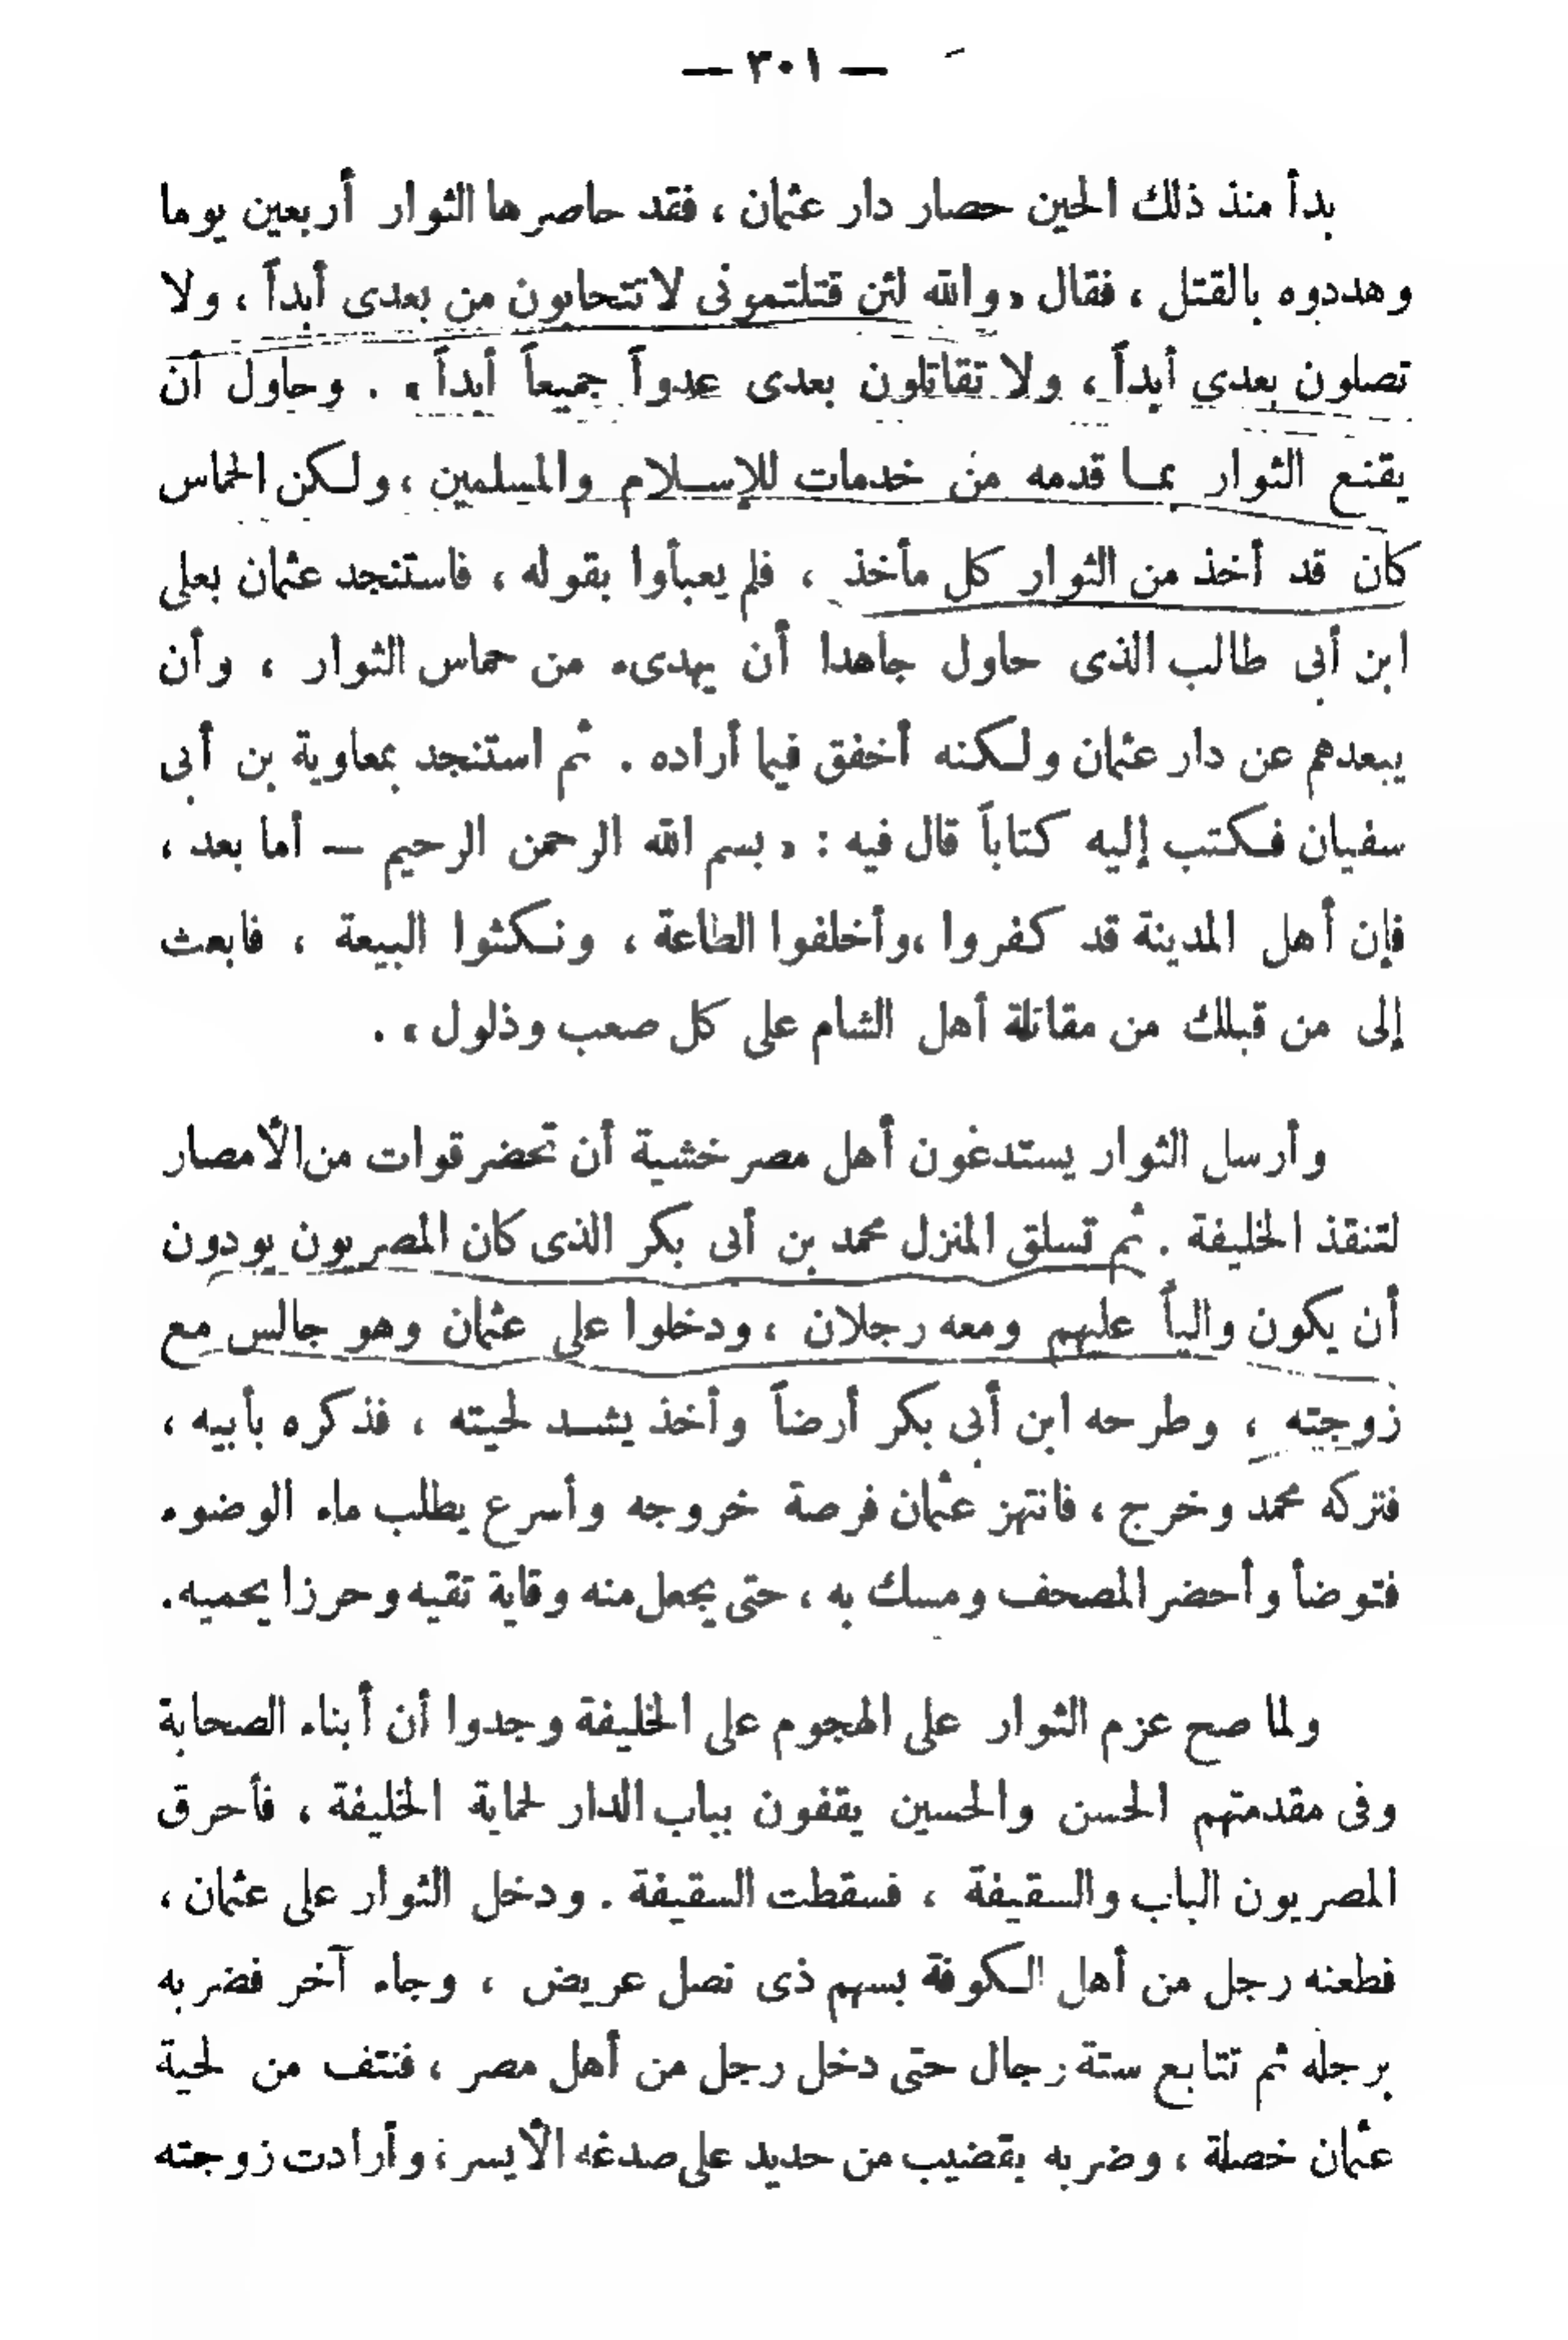 — ٣٠١ —
بدأ منذ ذلك الحين حصار دار عثمان ، فقد حاصرها الثوار أربعين يوما
وهددوه بالقتل ، فقال « والله لئن قتلتمونى لا تتحابون من بعدى أبداً ، ولا
تصلون بعدى أبداً ، ولا تقاتلون بعدى عدواً جميعاً أبداً » . وحاول أن
يقنع الثوار بمـا قدمه من خدمات للإسـلام والمسلمين ، ولـكن الحماس
كان قد أخذ من الثوار كل مأخذ ، فلم يعبأوا بقوله ، فاستنجد عثمان بعلى
ابن أبى طالب الذى حاول جاهدا أن يهدىء من حماس الثوار ، وأن
يبعدهم عن دار عثمان ولـكنه أخفق فيما أراده . ثم استنجد بمعاوية بن أبى
سفيان فـكتب إليه كتاباً قال فيه : « بسم الله الرحمن الرحيم — أما بعد ،
فإن أهل المدينة قد كفروا ،وأخلفوا الطاعة ، ونـكثوا البيعة ، فابعث
إلى من قبلك من مقاتلة أهل الشام على كل صعب وذلول » .
وأرسل الثوار يستدغون أهل مصر خشية أن تحضر قوات من الأمصار
لتنقذ الخليفة . ثم تسلق المنزل محمد بن أبى بكر الذى كان المصريون يودون
أن يكون والياً عليهم ومعه رجلان ، ودخلوا على عثمان وهو جالس مع
زوجته ، وطرحه ابن أبى بكر أرضاً وأخذ يشـد لحيته ، فذكره بأبيه ،
فتركه محمد وخرج ، فانتهز عثمان فرصة خروجه وأسرع يطلب ماء الوضوء
فتوضأ وأحضر المصحف ومسك به ، حتى يجعل منه وقاية تقيه وحرزا يحميه.
ولما صح عزم الثوار على الهجوم على الخليفة وجدوا أن أبناء الصحابة
وفى مقدمتهم الحسن والحسين يقفون بباب الدار لحماية الخليفة ، فأحرق
المصريون الباب والسقيفة ، فسقطت السقيفة . ودخل الثوار على عثمان ،
فطعنه رجل من أهل الـكوفة بسهم ذى نصل عريض ، وجاء آخر فضربه
برجله ثم تتابع ستة رجال حتى دخل رجل من أهل مصر ، فنتف من لحية
عثمان خصلة ، وضربه بقضيب من حديد على صدغه الأيسر ، وأرادت زوجته